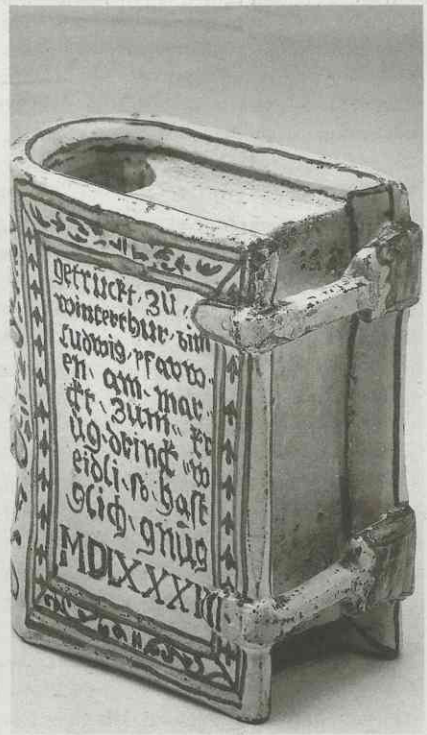 getruckt · zu ·
winterthur · bim
ludwig · pfauw-
en · am · mar-
ckt · zum · kr
ug · drinck · w
eidli · so · hast
glich · gnug
MDLXXXIII